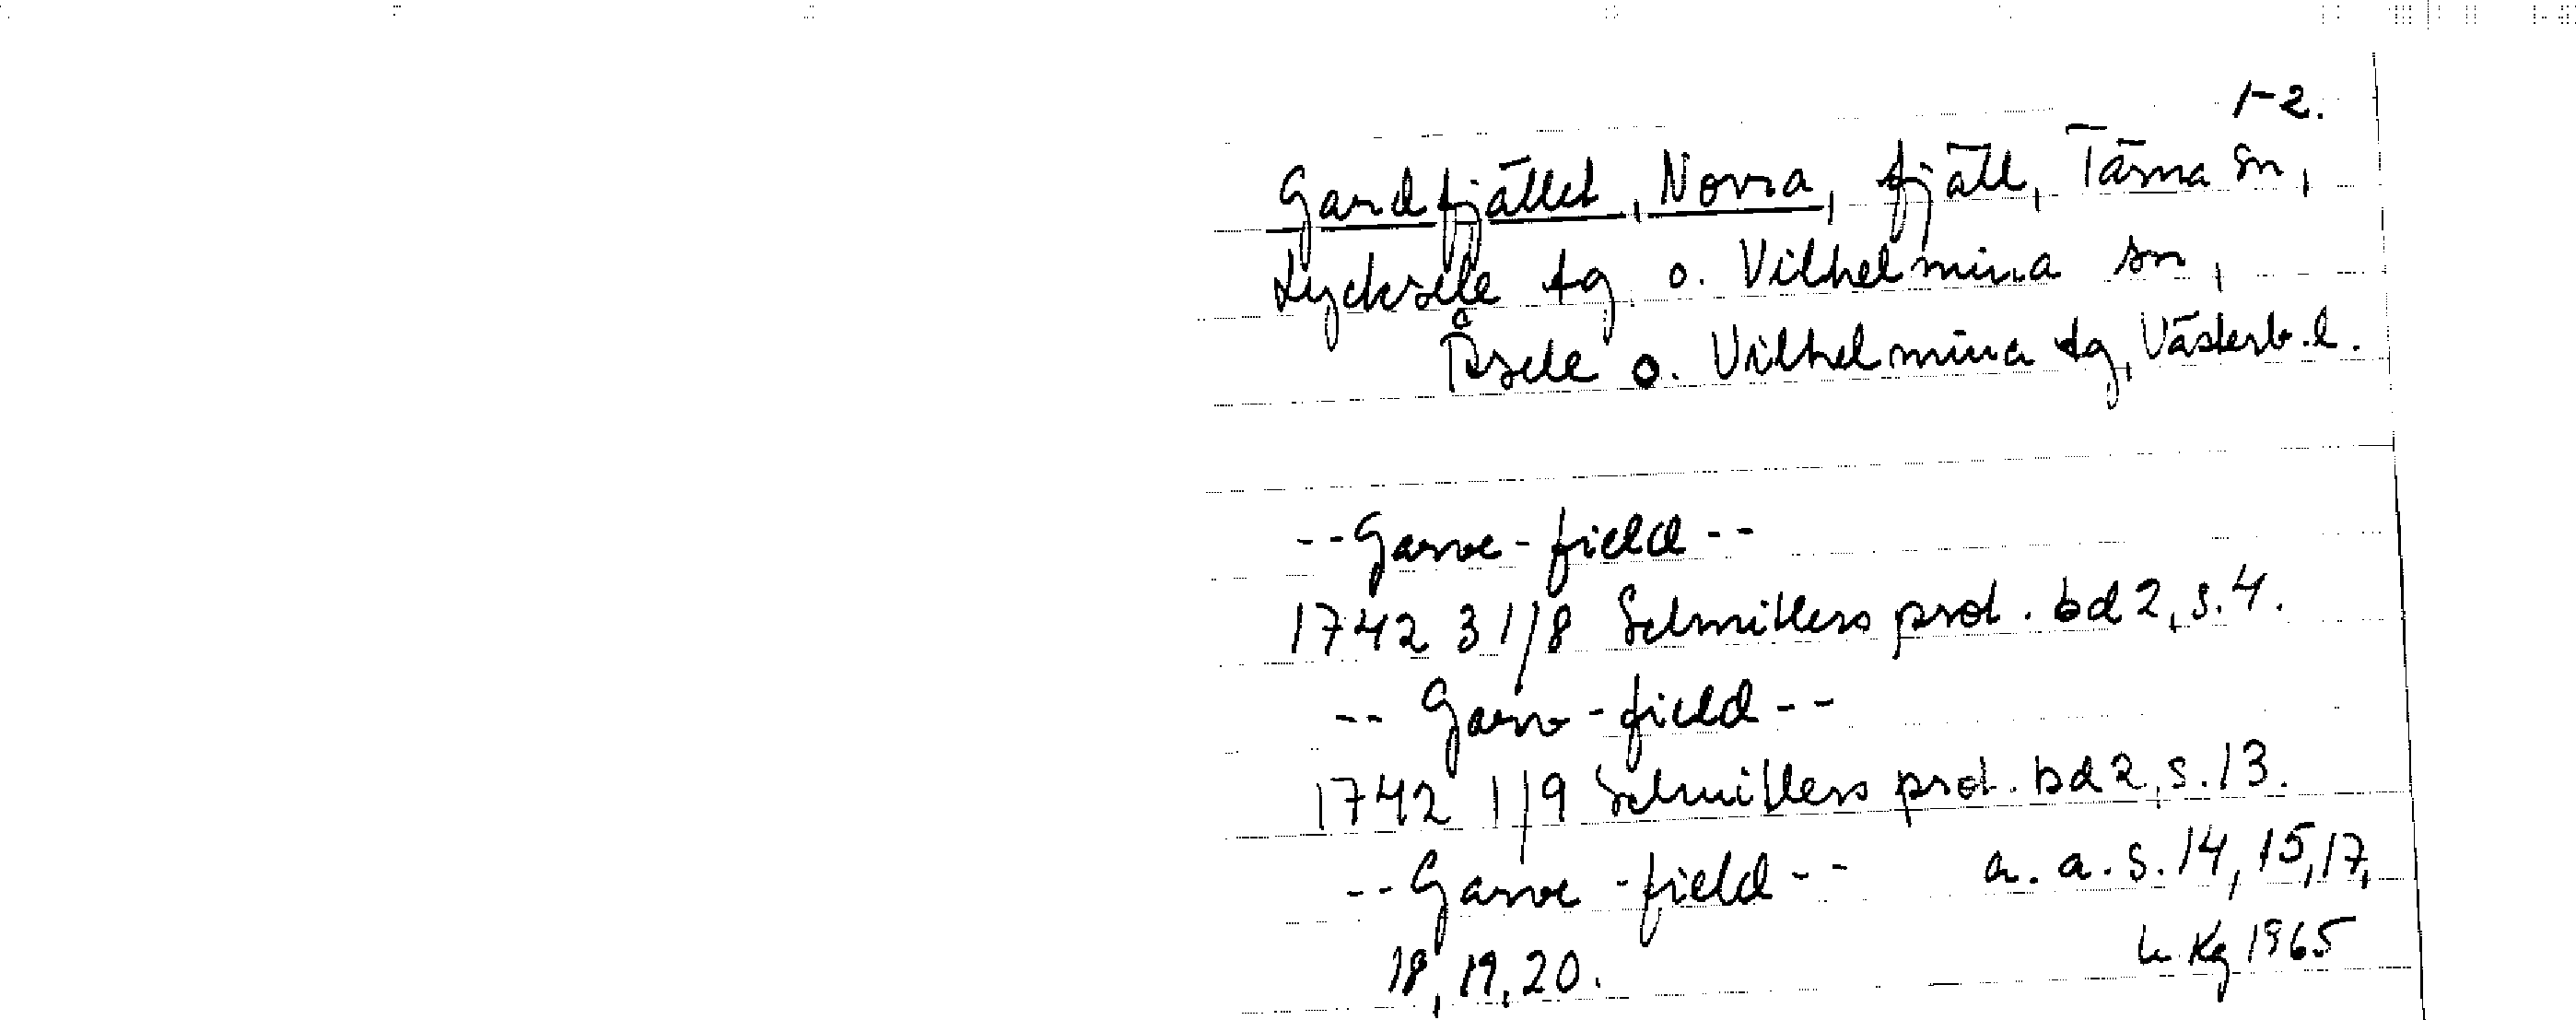 1-2.
Gardfjället, Norra, fjäll, Tärna sn,
Lycksele tg o. Vilhelmina sn,
Åsele o. Vilhelmina tg, Västerb. l.
--Garve-field--
1742 31/8 Schnitlers prot. bd 2, s. 4.
-- Garv-field--
1742 1/9 Schnitlers prot. bd 2, s. 13.
--Garve-field-- a. a. s. 14, 15, 17,
18, 19, 20.
Kg 1965